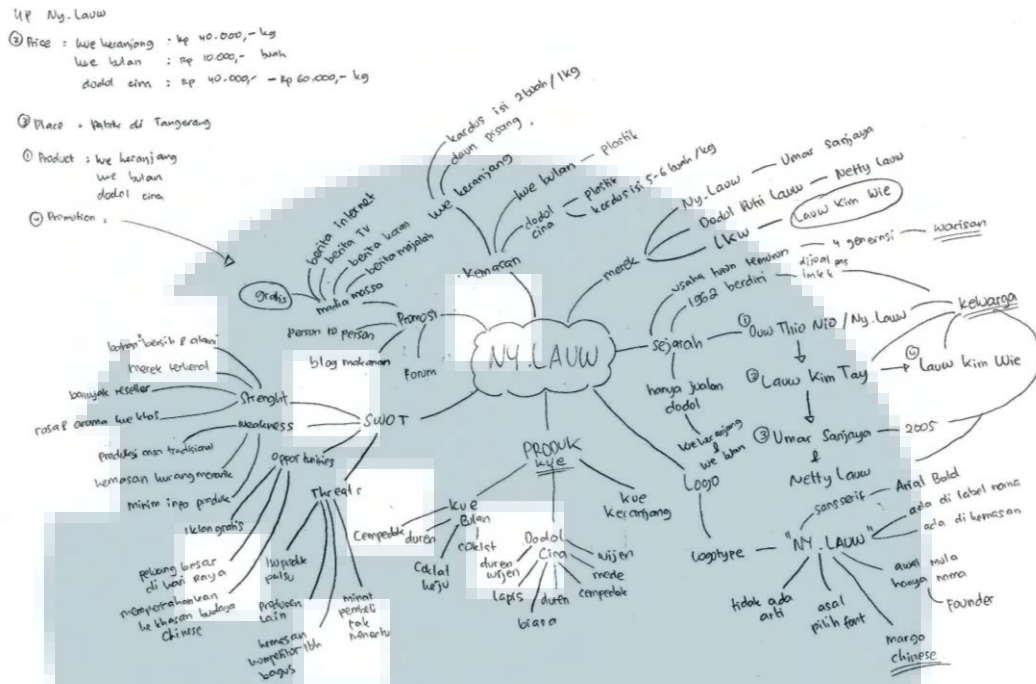 UP Ny. Lauw
② Price : kue keranjang : Rp 40.000,- kg
kue bulan : Rp 10.000,- buah
dodol cina : Rp 40.000,- - Rp 60.000,- kg
③ Place : Pabrik di Tangerang
① Product : kue keranjang
kue bulan
dodol cina
④ Promotion :
NY. LAUW
Kemasan
kue keranjang
kardus isi 2 buah / 1 kg
daun pisang
kue bulan
plastik
dodol
cina
plastik
kardus isi 5-6 buah / kg
merek
Ny. Lauw
Umar Sanjaya
Dodol Putri Lauw
Netty Lauw
LKW
Lauw Kim Wie
sejarah
usaha turun temurun
4 generasi
warisan
1962 berdiri
dijual pas
imlek
keluarga
① Ouw Thio Nio / Ny. Lauw
② Lauw Kim Tay
④ Lauw Kim Wie
③ Umar Sanjaya
&
Netty Lauw
2005
hanya jualan
dodol
kue keranjang
&
kue bulan
Logo
Logotype
"NY. LAUW"
sansserif
Arial Bold
ada di label nama
ada di kemasan
awal mula
hanya nama
Founder
marga
chinese
asal
pilih font
tidak ada
arti
PRODUK
kue
kue
keranjang
Dodol
Cina
wijen
mede
cempedak
duren
lapis
duren
wijen
kue
Bulan
Cempedak
duren
Coklat
keju
coklat
Promosi
media massa
berita internet
berita TV
berita koran
berita majalah
gratis
person to person
blog makanan
Forum
SWOT
Strenght
bahan² bersih & alami
merek terkenal
banyak reseller
rasa & aroma kue khas
Weakness
produksi masa tradisional
kemasan kurang menarik
minim info produk
Opportunities
Iklan gratis
peluang besar
di hari raya
mempertahankan
ke khasan budaya
Chinese
Threats
produk
palsu
produsen
lain
kemasan
kompetitor lbh
bagus
minat
pembeli
tak
menentu